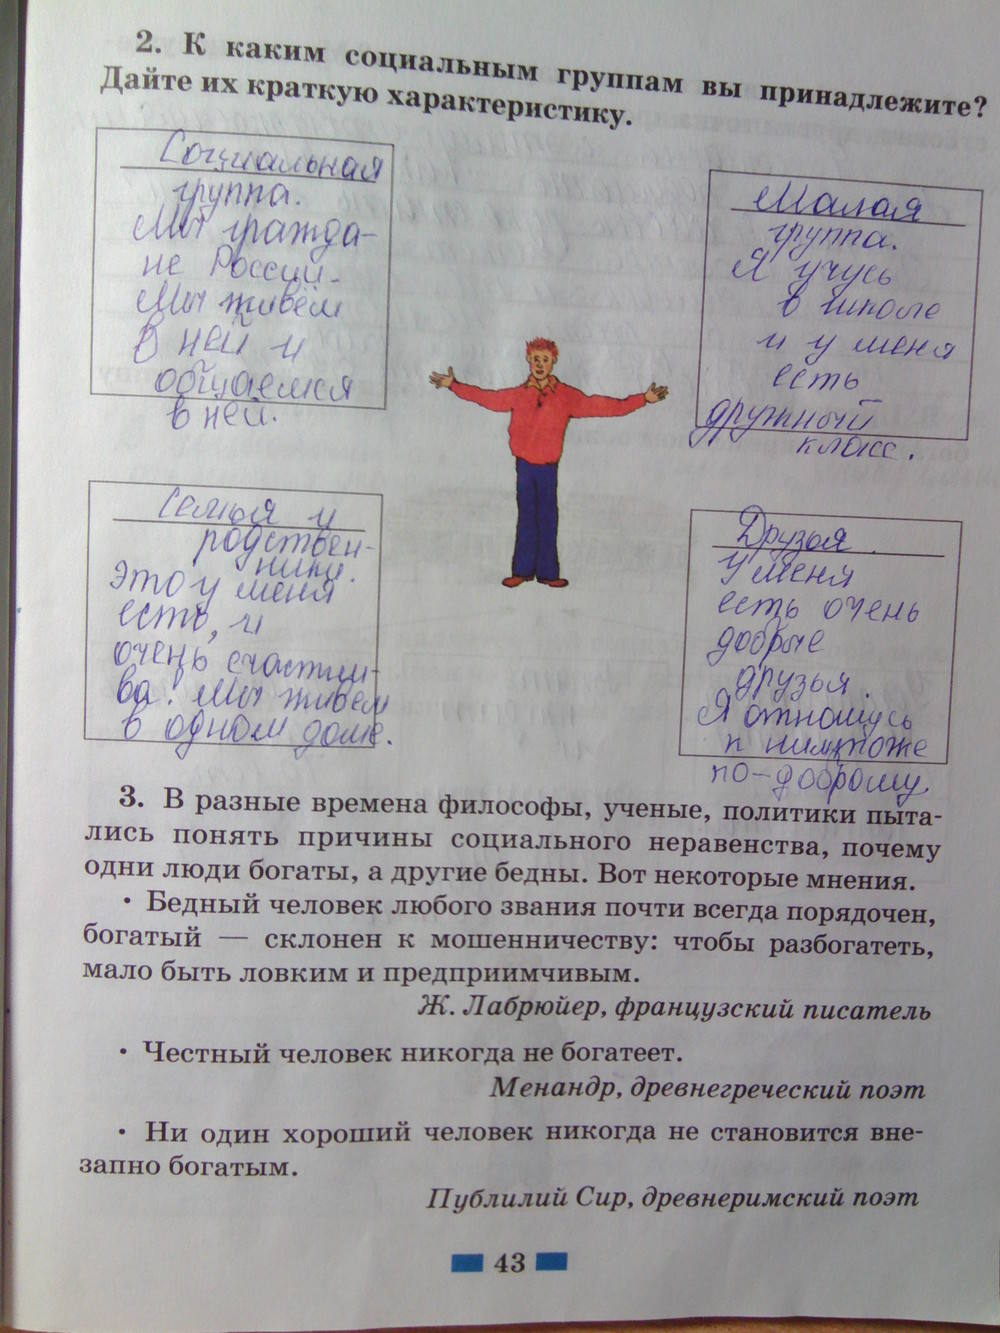 2. К каким социальным группам вы принадлежите?
Дайте их краткую характеристику.
Социальная
группа.
Мы гражда-
не России.
Мы живём
в ней и
общаемся
в ней.
Малая
группа.
Я учусь
в школе
и у меня
есть
дружный
класс.
Семья и
родствен-
ники.
Это у меня
есть, и
очень счастли-
ва! Мы живём
в одном доме.
Друзья.
У меня
есть очень
добрые
друзья.
Я отношусь
к ним тоже
по-доброму
3. В разные времена философы, ученые, политики пыта-
лись понять причины социального неравенства, почему
одни люди богаты, а другие бедны. Вот некоторые мнения.
• Бедный человек любого звания почти всегда порядочен,
богатый — склонен к мошенничеству: чтобы разбогатеть,
мало быть ловким и предприимчивым.
Ж. Лабрюйер, французский писатель
• Честный человек никогда не богатеет.
Менандр, древнегреческий поэт
• Ни один хороший человек никогда не становится вне-
запно богатым.
Публилий Сир, древнеримский поэт
43